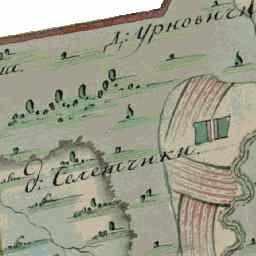 Д; Урновичи
ша.
д; Селетчики.